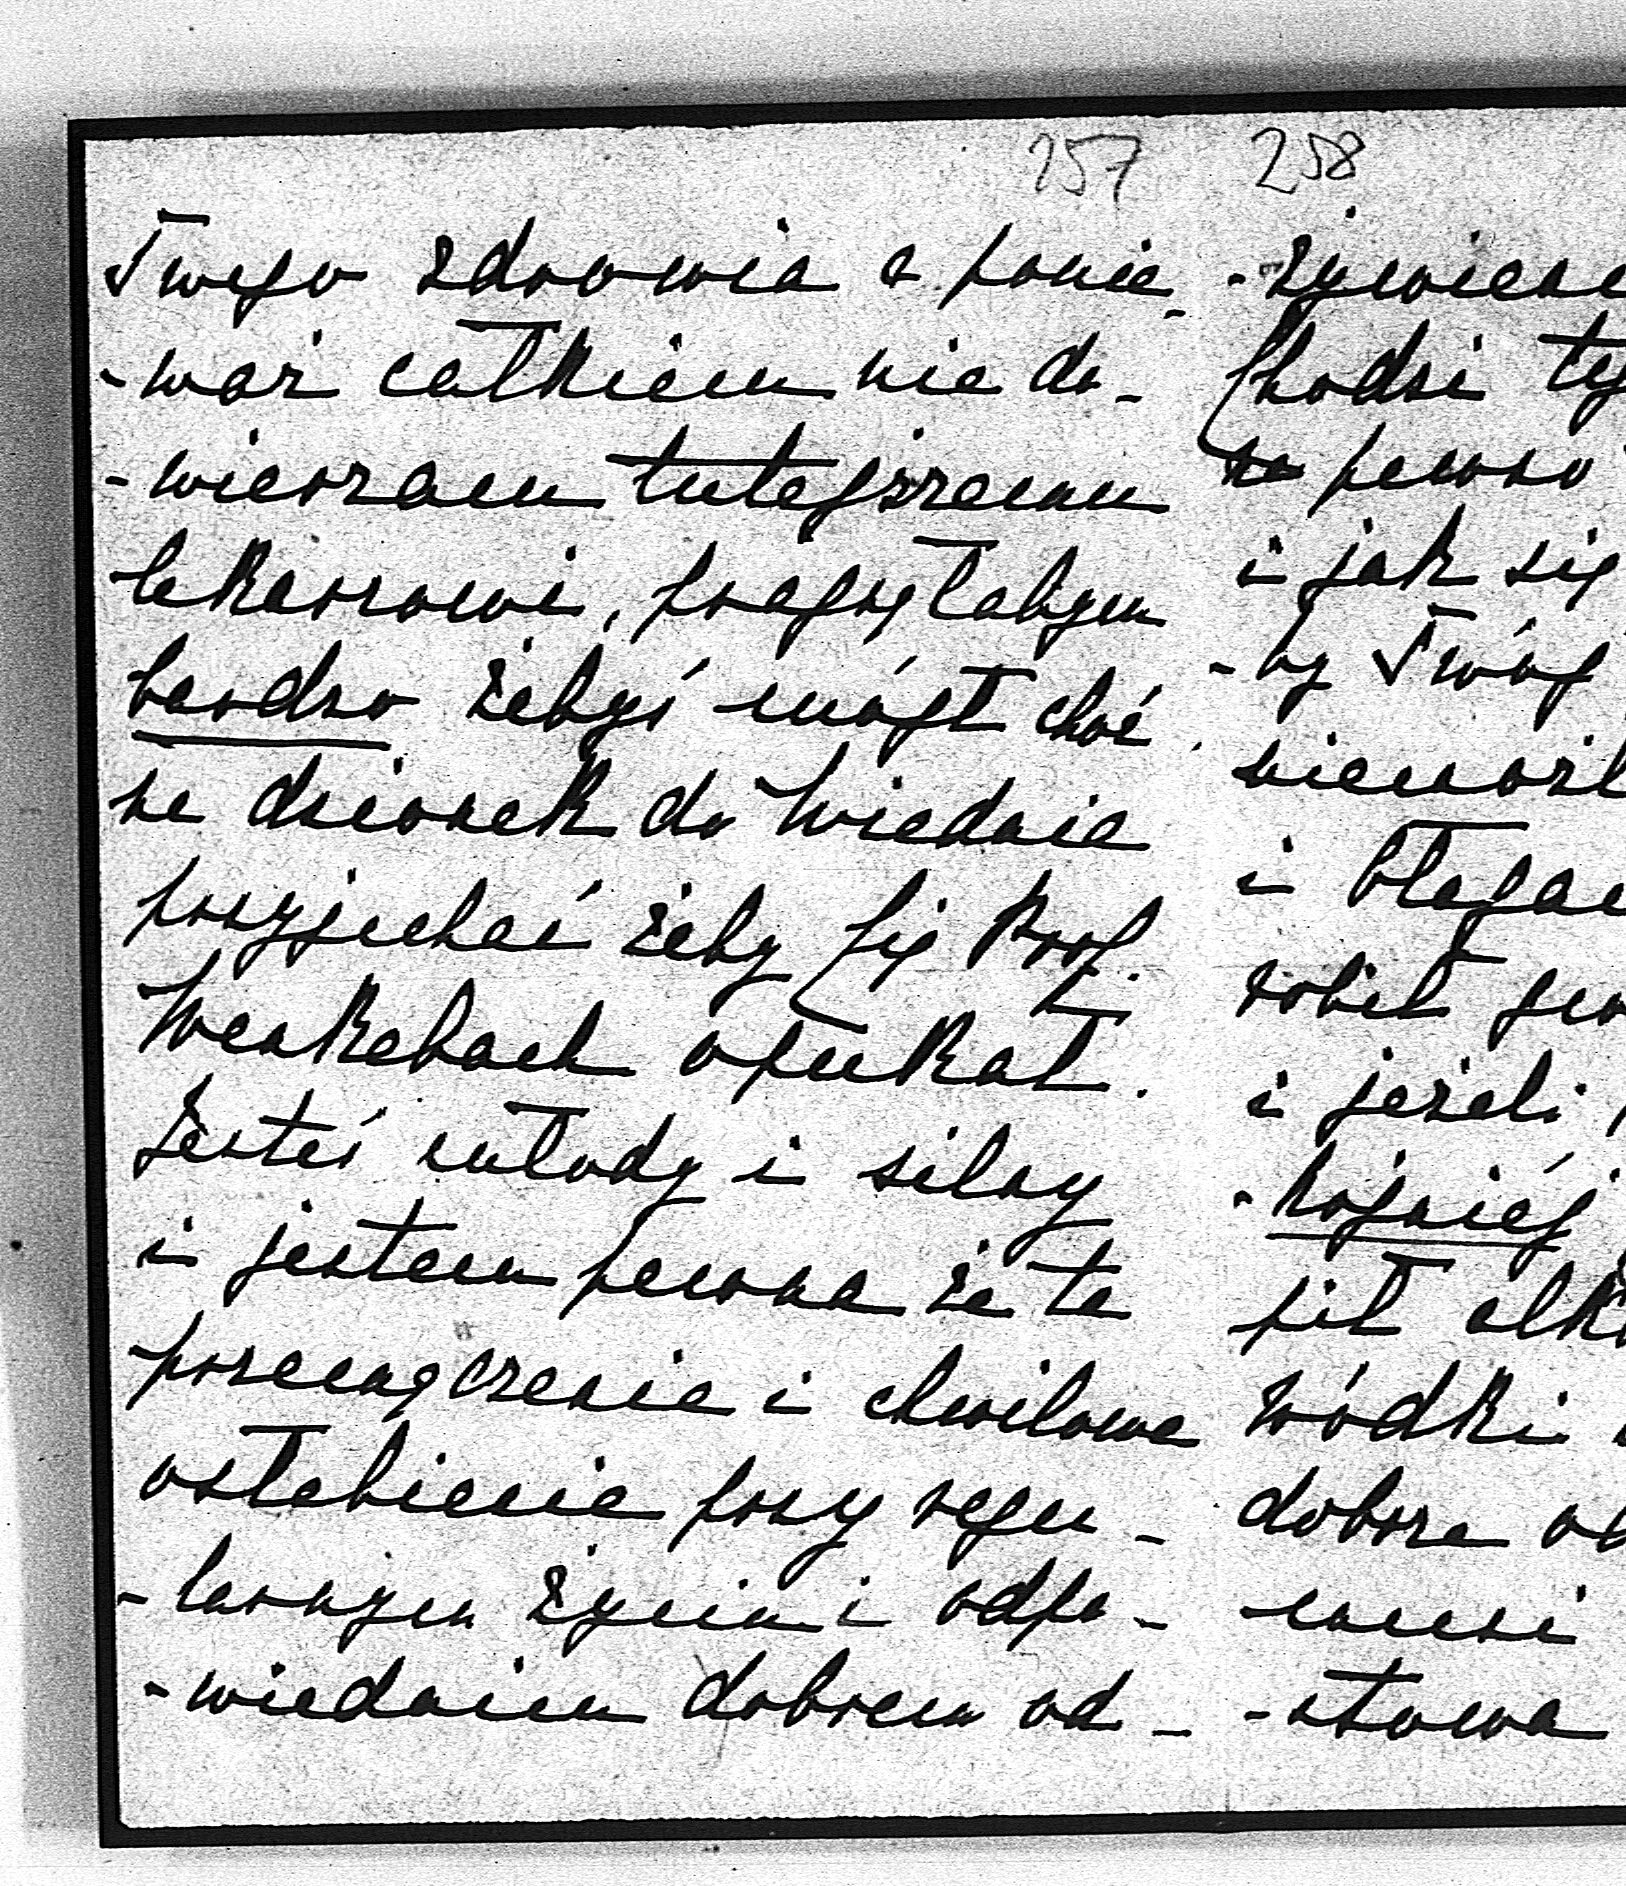 257
Twego zdrowia a ponie-
-waż całkiem nie do-
-wierzam tutejszemu
lekarzowi, pragnęłabym
bardzo żebyś mógł choć
na dzionek do Wiednia
przyjechać żeby Cię Prof.
Wenkebach opukał.
Jesteś młody i silny
i jestem pewna że te
przemęczenie i chwilowe
osłabienie przy regu-
-larnym życiu i odpo-
-wiedniem dobrem od-
258
-żywieni
Chodzi ty
na pewno
i jak się
-by Twój
niemożl
i błaga
robił
i jeżeli
-kojniéj
pił alko
wódki
dobrze
musi
-stowa